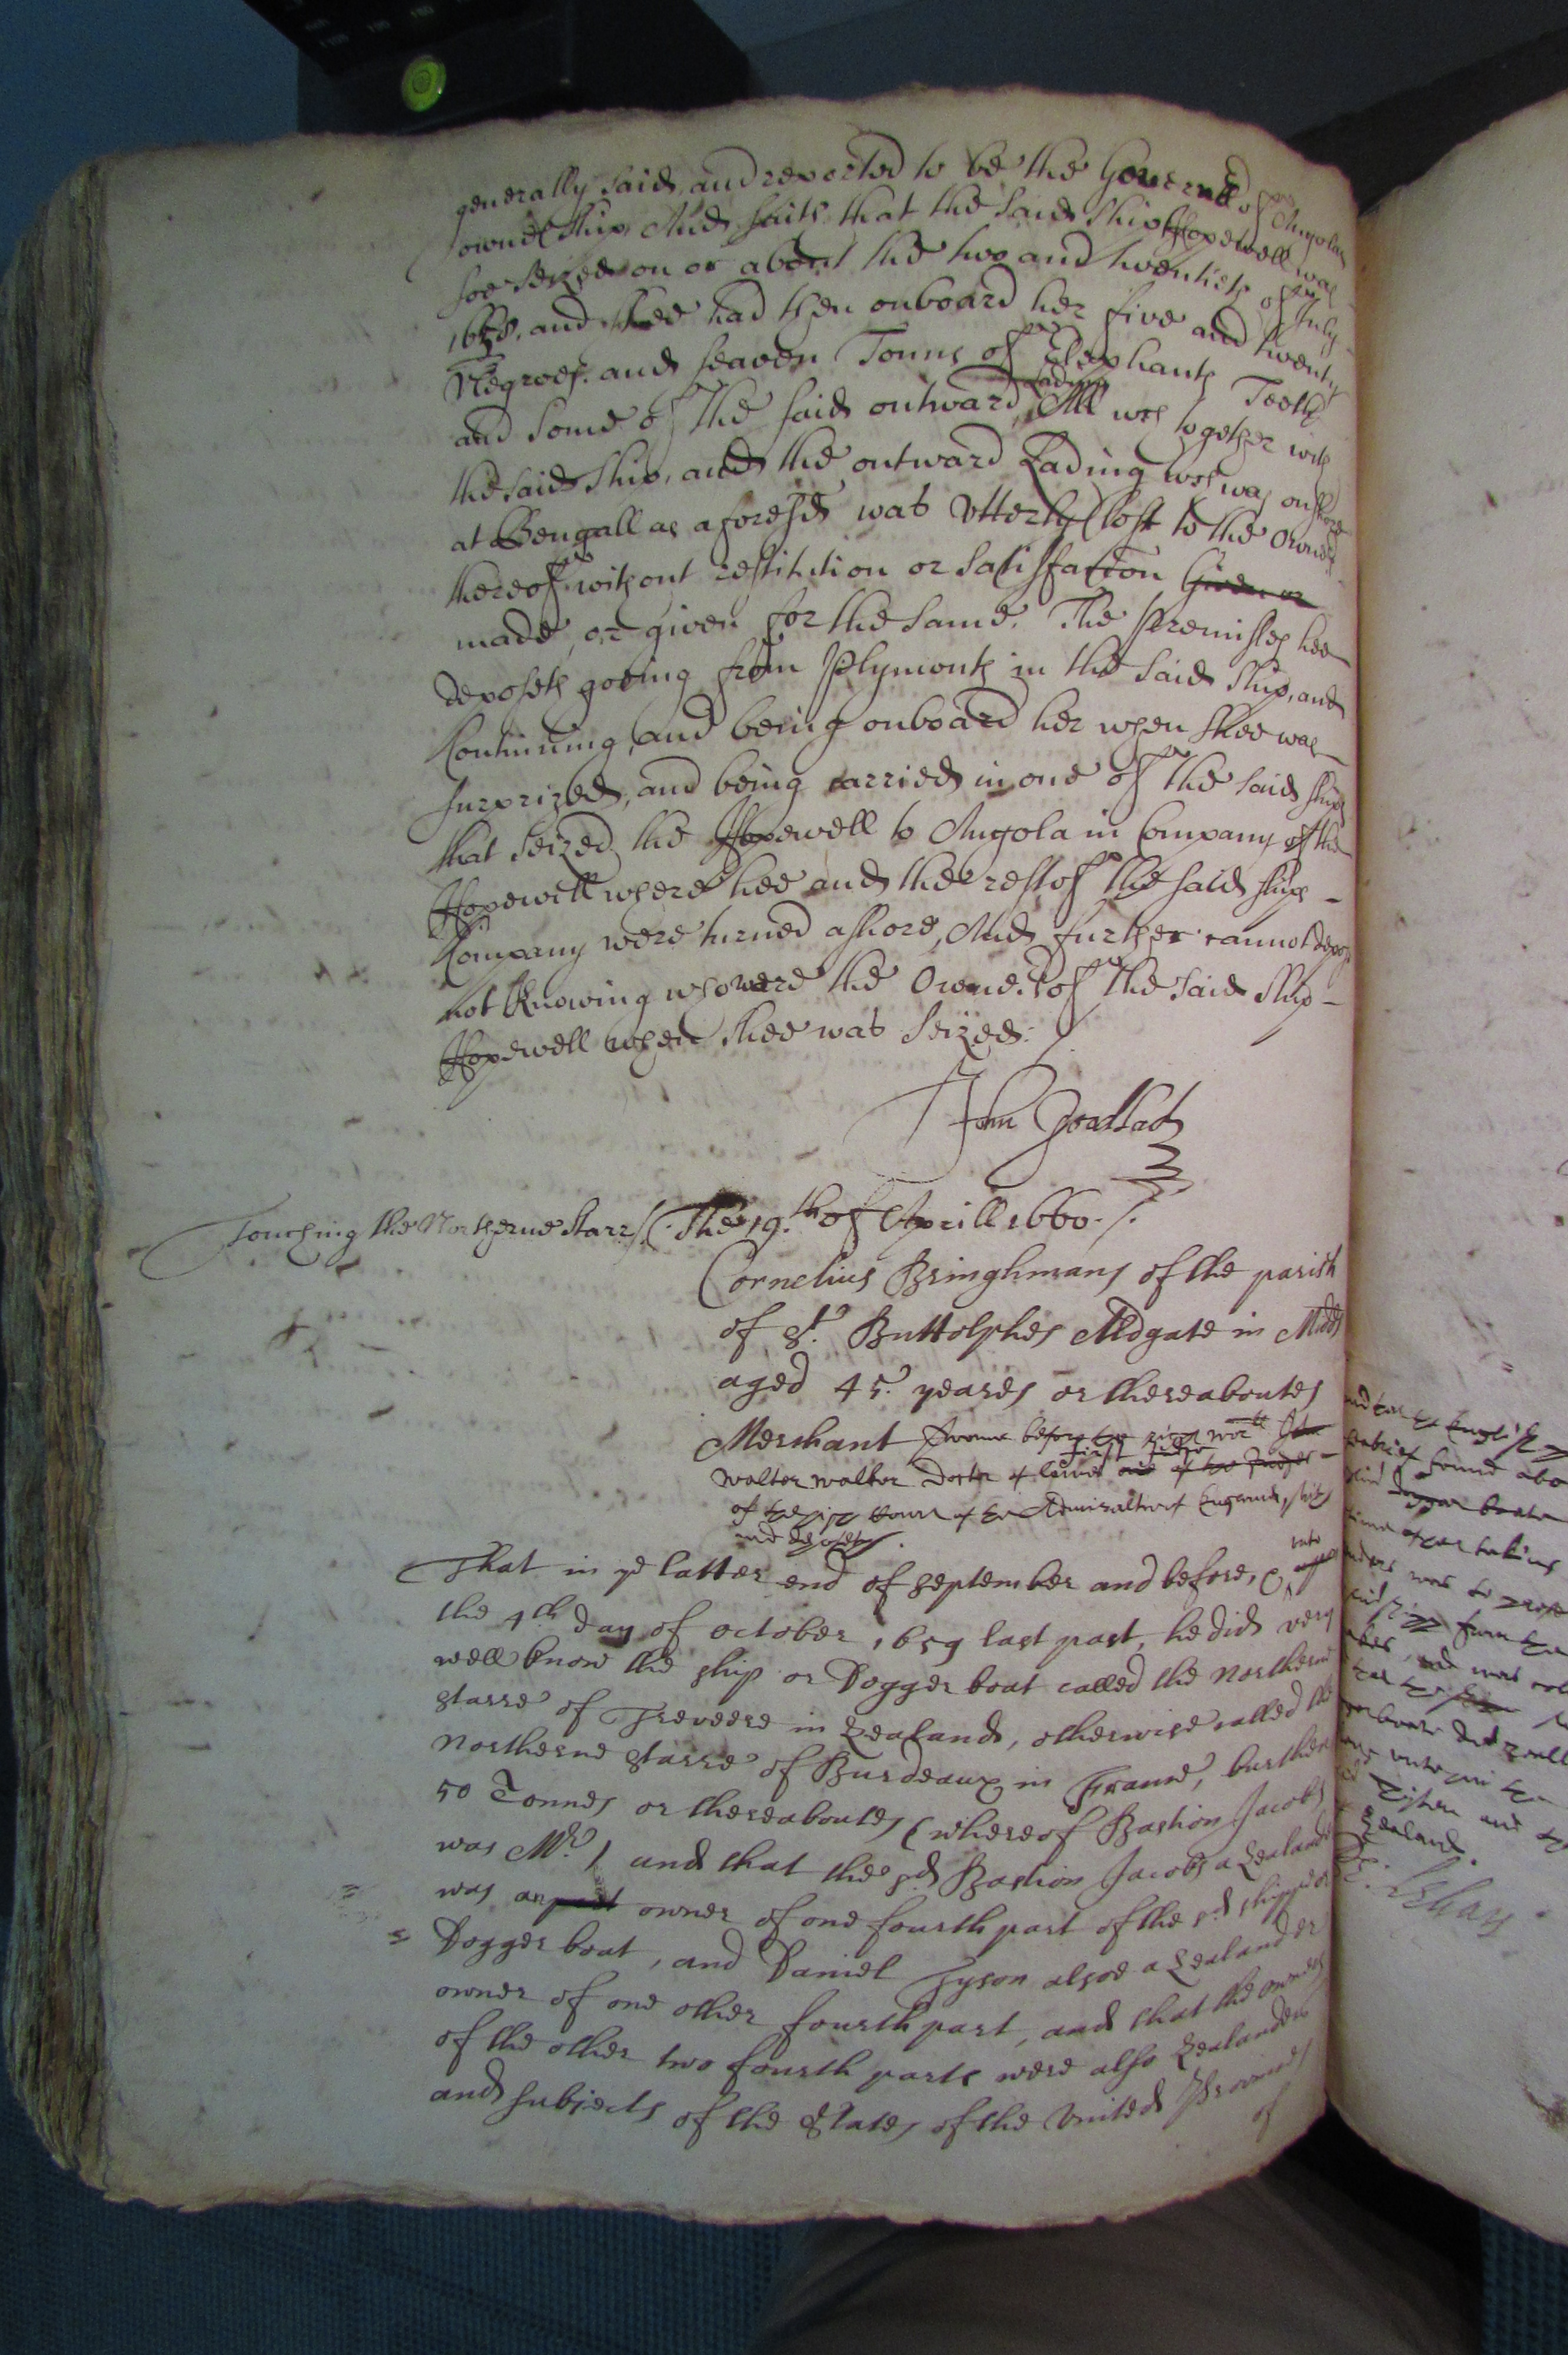 generally said, and reported to be the Governo:rs of Angolas
owne Ship, And saith that the said ship Hopewell was
soe seized on or about the two and twentieth of July
1658, and shee had then onboard her five and twenty
Negroes. and seaven Tonns of Elephants Teeth
and some of the said outward Lading, All wch together with
the said Ship, and the outward Lading wch was on shore
at Bengall as aforesd was Utterly lost to the Owners
thereof without restitution or satisfaction Given or
made, or given for the same. The premisses hee
deposeth goeing from Plymouth in the said Ship, and
Continuing, and being onboard her when shee was
surprized, and being carried in one of the said ships
that seized the Hopewell to Angola in Company of the
Hopewell where hee and the rest of the said ships
Company were turned ashore, And further cannot depose
not knowing who were the Owners of the said Ship
Hopewell when shee was seized:
John
Touching the Northerne Starr /. The 19.th of Aprill 1660. /.
Cornelius Bringhmans of the parish
of St. Buttolphes Aldgate in Midds
aged 45. yeares or thereaboutes
Merchant sworne before the right worll
first Judge
Walter Walker Doctor of lawes one of the Judges
of the high Court of the Admiraltie of England, saith
and deposeth.
That in ye latter end of September and before, & unto
the 4th day of October 1659 last past, he did very
well know the ship or Dogger boat called the Northerne
starre of Treveere in Zealand, otherwise called the
Northerne starre of Burdeaux in France, burthen
50 Tonnes or thereaboutes (whereof Bastion Jacobs
was Mr.) and that the sd Bastion Jacobs a Zealander
was an part owner of one fourth part of the sd shipp or
Dogger boat, and Daniel Tyson alsoe a Zealander
owner of one other fourth part, and that the owners
of the other two fourth parts were also Zealanders
and subjects of the States of the United Provinces
of
found abo
dogger boate
was to
Zealand.